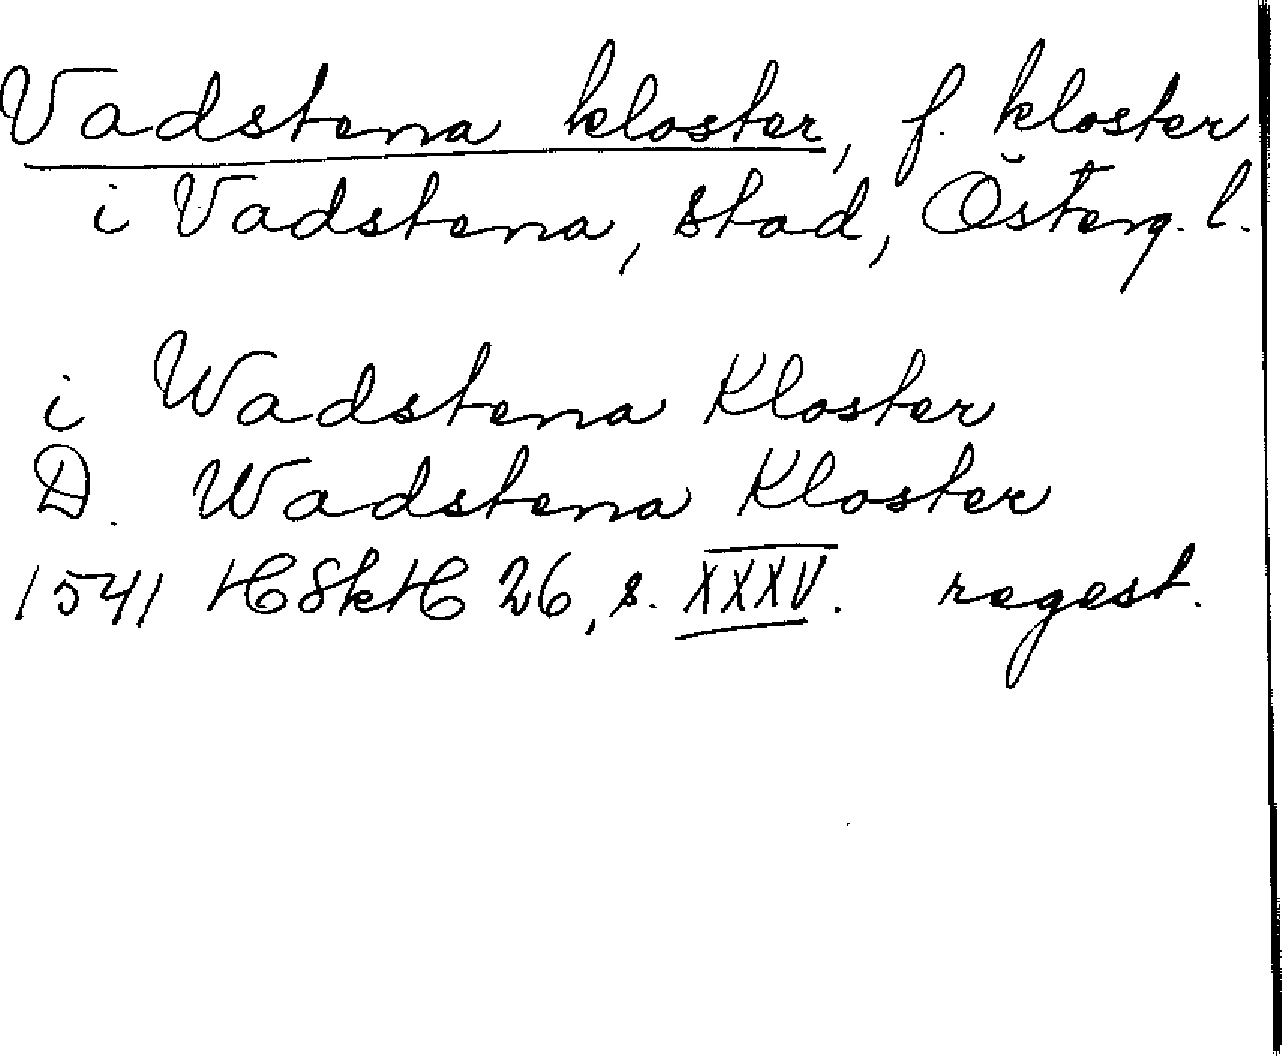 Vadstena kloster, f. kloster
i Vadstena, stad, Österg. l.
i Wadstena Kloster
D. Wadstena Kloster
1541 HSkH 26, s. XXXV. regest.